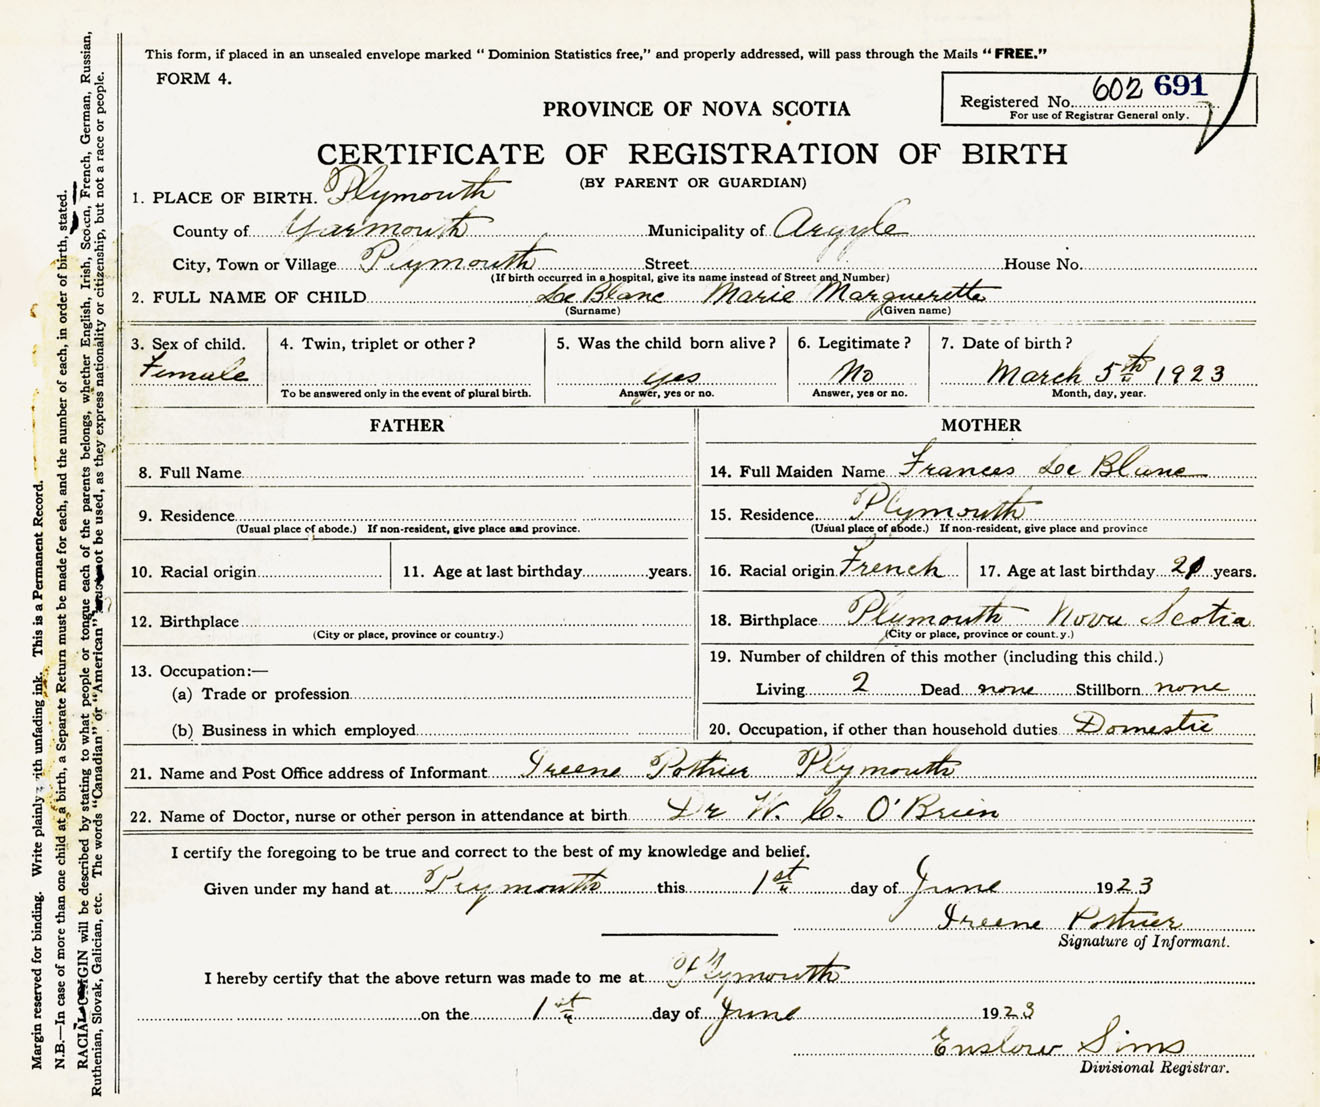 This form, if placed in an unsealed envelope marked "Dominion Statistics free," and properly addressed, will pass through the Mails "FREE."
FORM 4.
Registered No. 602 691
For use of Registrar General only.
PROVINCE OF NOVA SCOTIA
CERTIFICATE OF REGISTRATION OF BIRTH
(BY PARENT OR GUARDIAN)
1. PLACE OF BIRTH. Plymouth
County of Yarmouth Municipality of Argyle
City, Town or Village Plymouth Street House No.
(If birth occurred in a hospital, give its name instead of Street and Number)
2. FULL NAME OF CHILD Le Blanc Marie Marguerette
(Surname) (Given name)
3. Sex of child. 4. Twin, triplet or other? 5. Was the child born alive? 6. Legitimate? 7. Date of birth?
Female yes No March 5th 1923
To be answered only in the event of plural birth. Answer, yes or no. Answer, yes or no. Month, day, year.
FATHER MOTHER
8. Full Name 14. Full Maiden Name Frances Le Blanc
9. Residence 15. Residence Plymouth
(Usual place of abode.) If non-resident, give place and province. (Usual place of abode.) If non-resident, give place and province
10. Racial origin 11. Age at last birthday years. 16. Racial origin French 17. Age at last birthday 21 years.
12. Birthplace 18. Birthplace Plymouth Nova Scotia
(City or place, province or country.) (City or place, province or count.y.)
13. Occupation:— 19. Number of children of this mother (including this child.)
(a) Trade or profession Living 2 Dead none Stillborn none
(b) Business in which employed 20. Occupation, if other than household duties Domestic
21. Name and Post Office address of Informant Ireene Pothier Plymouth
22. Name of Doctor, nurse or other person in attendance at birth Dr W. C. O'Brien
I certify the foregoing to be true and correct to the best of my knowledge and belief.
Given under my hand at Plymouth this 1st day of June 1923
Ireene Pothier
Signature of Informant.
I hereby certify that the above return was made to me at Plymouth
on the 1st day of June 1923
Enslow Sims
Divisional Registrar.
Margin reserved for binding. Write plainly with unfading ink. This is a Permanent Record.
N.B.—In case of more than one child at a birth, a Separate Return must be made for each, and the number of each, in order of birth, stated.
RACIAL ORIGIN will be described by stating to what people or tongue each of the parents belongs, whether English, Irish, Scotch, French, German, Russian,
Ruthenian, Slovak, Galician, etc. The words "Canadian" or "American" must not be used, as they express nationality or citizenship, but not a race or people.